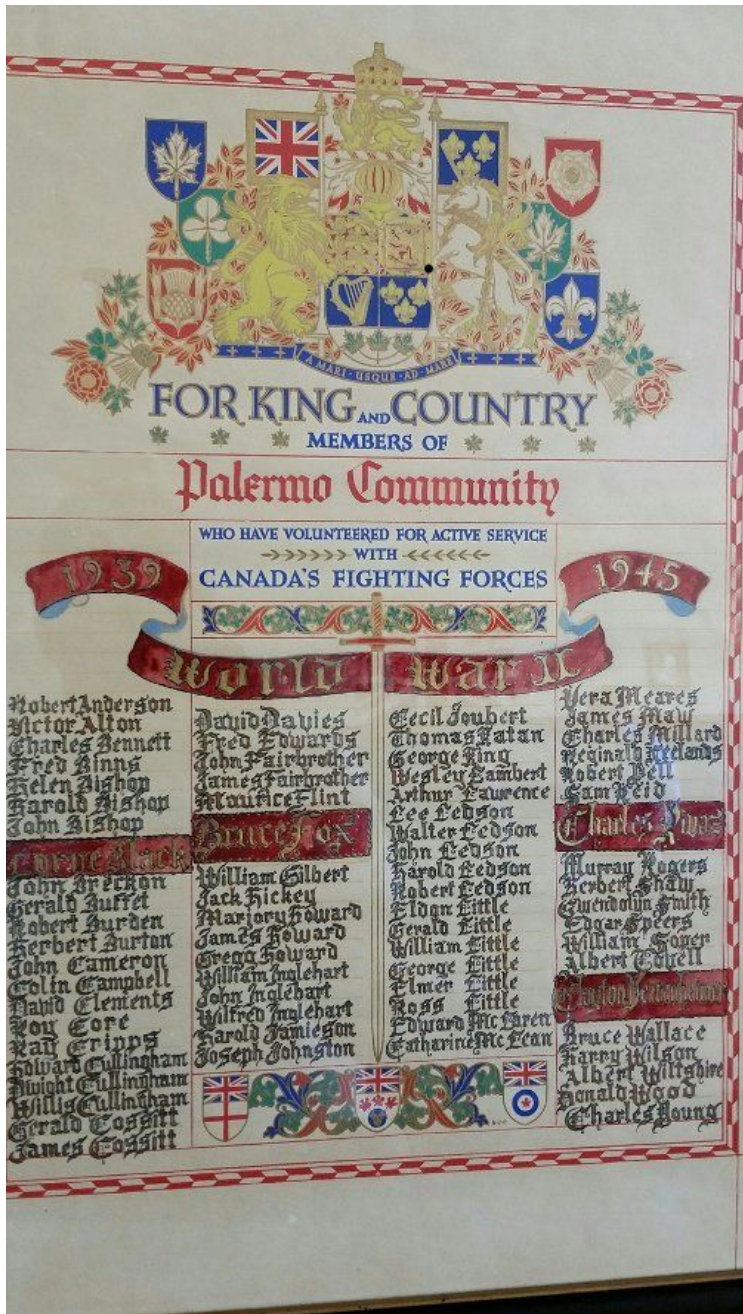 A MARI · USQUE · AD · MARE
FOR KING AND COUNTRY
MEMBERS OF
Palermo Community
WHO HAVE VOLUNTEERED FOR ACTIVE SERVICE
WITH
CANADA'S FIGHTING FORCES
1939
1945
World War II
Robert Anderson
Victor Alton
Charles Bennett
Fred Binns
Helen Bishop
Harold Bishop
John Bishop
Lorne Mack
John Breckon
Gerald Buffet
Robert Burden
Herbert Burton
John Cameron
Colin Campbell
David Clements
Roy Core
Ray Cripps
Edward Cullingham
Dwight Cullingham
Willis Cullingham
Gerald Cossitt
James Cossitt
David Davies
Fred Edwards
John Fairbrother
James Fairbrother
Maurice Flint
Bruce Fox
William Gilbert
Jack Hickey
Marjory Howard
James Howard
Gregg Howard
William Inglehart
John Inglehart
Wilfred Inglehart
Harold Jamieson
Joseph Johnston
Cecil Joubert
Thomas Katan
George King
Wesley Lambert
Arthur Lawrence
Lee Ledson
Walter Ledson
John Ledson
Harold Ledson
Robert Ledson
Eldon Little
Gerald Little
William Little
George Little
Elmer Little
Ross Little
Edward McLaren
Catharine McLean
Vera Meares
James Maw
Charles Millard
Reginald Neelands
Robert Pell
Sam Reid
Charles
Murray Rogers
Herbert Shaw
Gwendolyn Smith
Edgar Speers
William Soper
Albert
Clayton
Bruce Wallace
Harry Wilson
Albert Wiltshire
Donald Wood
Charles Young